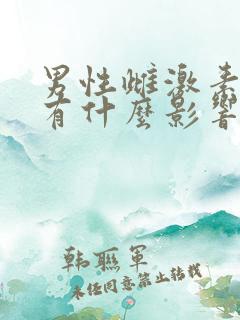 男性雌激素
有什麼影響
韩联军
未经同意禁止转载